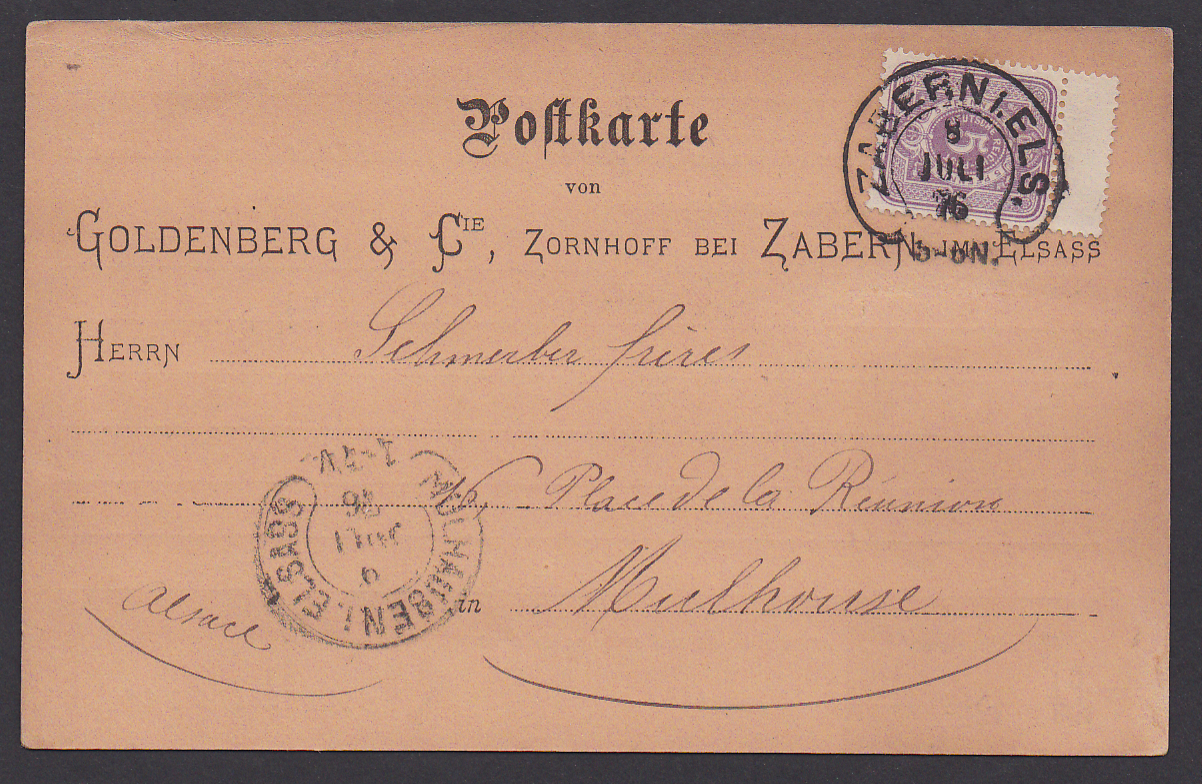 Postkarte
von
GOLDENBERG & CIE, ZORNHOFF BEI ZABERN IM ELSASS
ZABERN I. ELS.
8
JULI
76
5-6N.
DEUTSCHE REICHS
5
HERRN Schmerber frères
16, Place de la Réunion
in Mulhouse
Alsace
MÜLHAUSEN I. ELSASS
9
JULI
76
1-7V